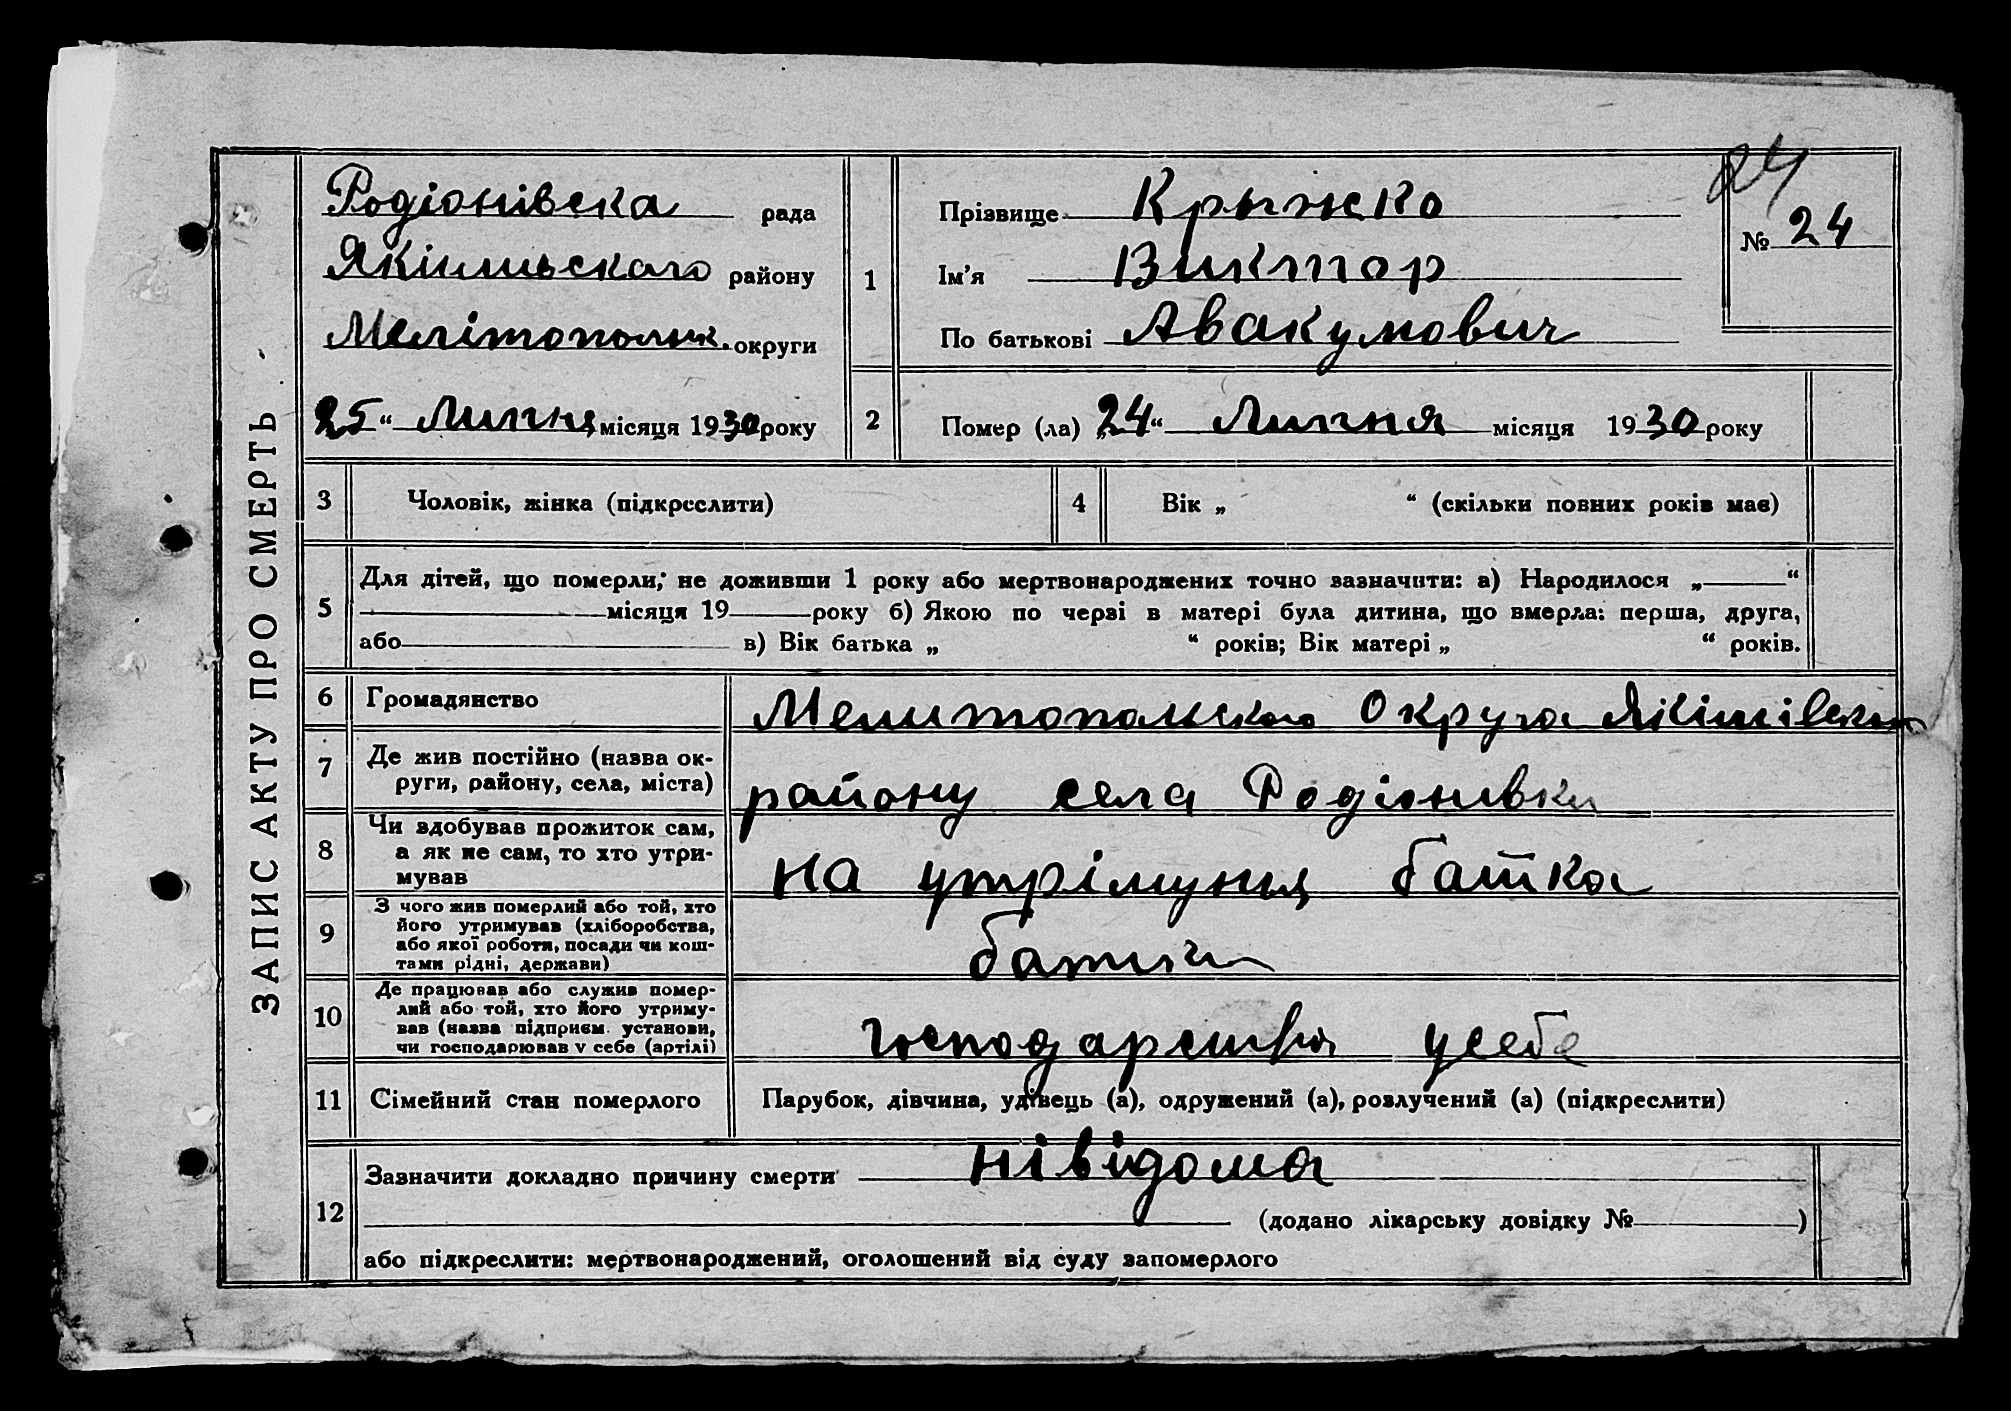 24
ЗАПИС АКТУ ПРО СМЕРТЬ
Родіонівска рада
району
Мелітопольк. округи
25 “ Липня місяця 1930 року
1
Прізвище Крыжко
Ім’я Виктор
По батькові Авакумович
№ 24
2
Помер (ла) „24“ Липня місяця 1930 року
3 Чоловік, жінка (підкреслити)
4 Вік „ “ (скільки повних років має)
5
Для дітей, що померли, не доживши 1 року або мертвонароджених точно зазначити: а) Народилося „ “
місяця 19 року б) Якою по черзі в матері була дитина, що вмерла: перша, друга,
або в) Вік батька „ “ років; Вік матері „ “ років.
6 Громадянство
Мелитопольского Округа Якімівского
7 Де жив постійно (назва ок-
руги, району, села, міста)
району села Родіонивки
8 Чи здобував прожиток сам,
а як не сам, то хто утри-
мував
на утрімуння батка
9 З чого жив померлий або той, хто
його утримував (хліборобства,
або якої роботи, посади чи кош-
тами рідні, держави)
10 Де працював або служив помер-
лий або той, хто його утриму-
вав (назва підприєм. установи,
чи господарював у себе (артілі)
господарства усебе
11 Сімейний стан померлого
Парубок, дівчина, удівець (а), одружений (а), розлучений (а) (підкреслити)
12
Зазначити докладно причину смерти нівідома
(додано лікарську довідку № )
або підкреслити: мертвонароджений, оголошений від суду запомерлого